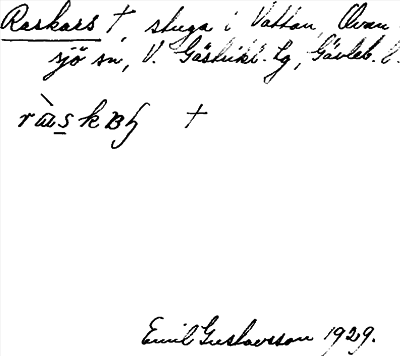 Raskars †, stuga i Vattan, Ovan
sjö sn, V. Gästrikl. tg, Gävleb. l.
†
Emil Gustavsson 1929.